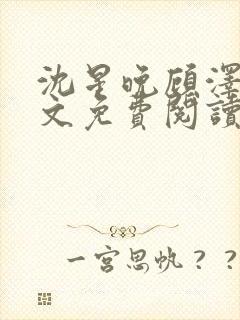 沈星晚顾澤
文免費閱讀
一宫思帆？？